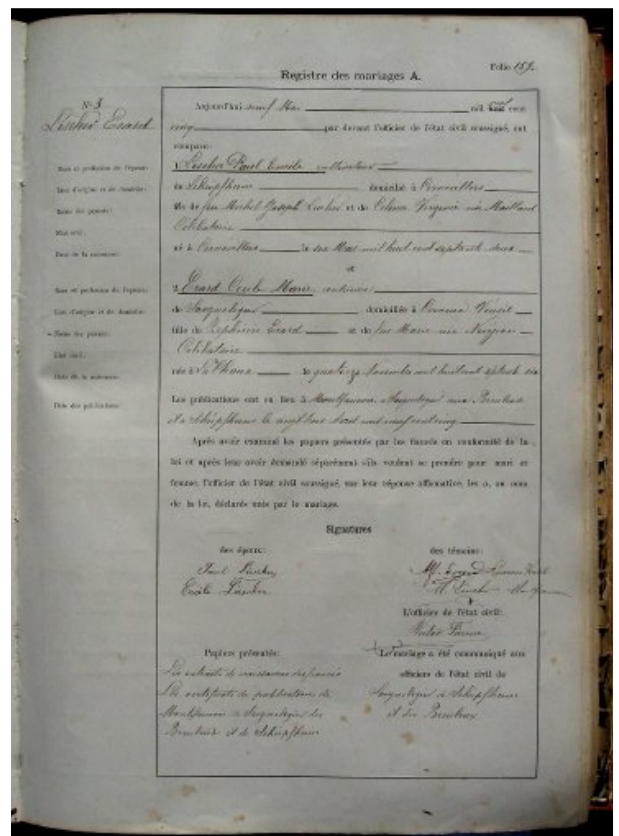 Folio 159.
Registre des mariages A.
N° 3
Lischer Erard
Nom et profession de l'époux:
Lieu d'origine et de domicile:
Noms des parents:
Etat civil:
Date de la naissance:
Nom et profession de l'épouse:
Lieu d'origine et de domicile:
Noms des parents:
Etat civil:
Date de la naissance:
Date des publications:
Aujourd'hui neuf Mai mil cent
cinq par devant l'officier de l'état civil soussigné, ont
comparu:
1. Lischer Paul Emile cultivateur
de Schüpfheim domicilié à
fils de feu Michel Joseph Lischer et de Virginie née Maillard
Célibataire
né à le six Mai mil huit cent septante deux
et
2. Erard Cécile Marie
de Saignelégier domiciliée à
fille de Erard et de feu Marie née
Célibataire
née à le quatorze Novembre mil huit cent septante six
Les publications ont eu lieu à Montfaucon, Saignelégier aux Breuleux
et à Schüpfheim le vingt Avril mil neuf cent cinq
Après avoir examiné les papiers présentés par les fiancés en conformité de la
loi et après leur avoir demandé séparément s'ils veulent se prendre pour mari et
femme, l'officier de l'état civil soussigné, sur leur réponse affirmative, les a, au nom
de la loi, déclarés unis par le mariage.
Signatures
des époux:
Paul Lischer
Cécile Lischer
des témoins:
L'officier de l'état civil:
Papiers présentés:
Les extraits de naissance des fiancés
Les certificats de publication de
Montfaucon de Saignelégier des
Breuleux et de Schüpfheim
Le mariage a été communiqué aux
officiers de l'état civil de
Saignelégier de Schüpfheim
et des Breuleux